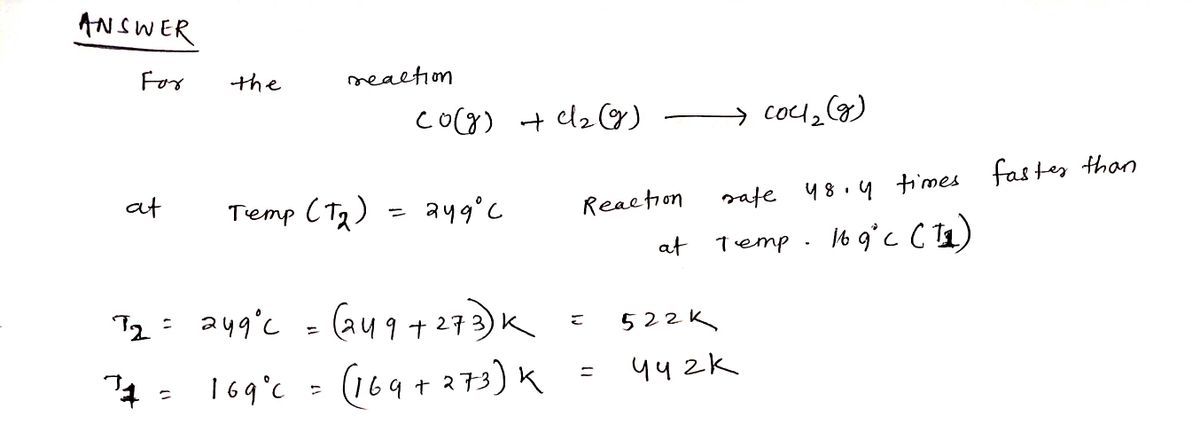 ANSWER
For the reaction
CO(g) + Cl₂(g) ⟶ COCl₂(g)
at Temp (T₂) = 249°C Reaction rate 48.4 times faster than
at Temp. 169°C (T₁)
T₂ = 249°C = (249 + 273) K = 522K
T₁ = 169°C = (169 + 273) K = 442K